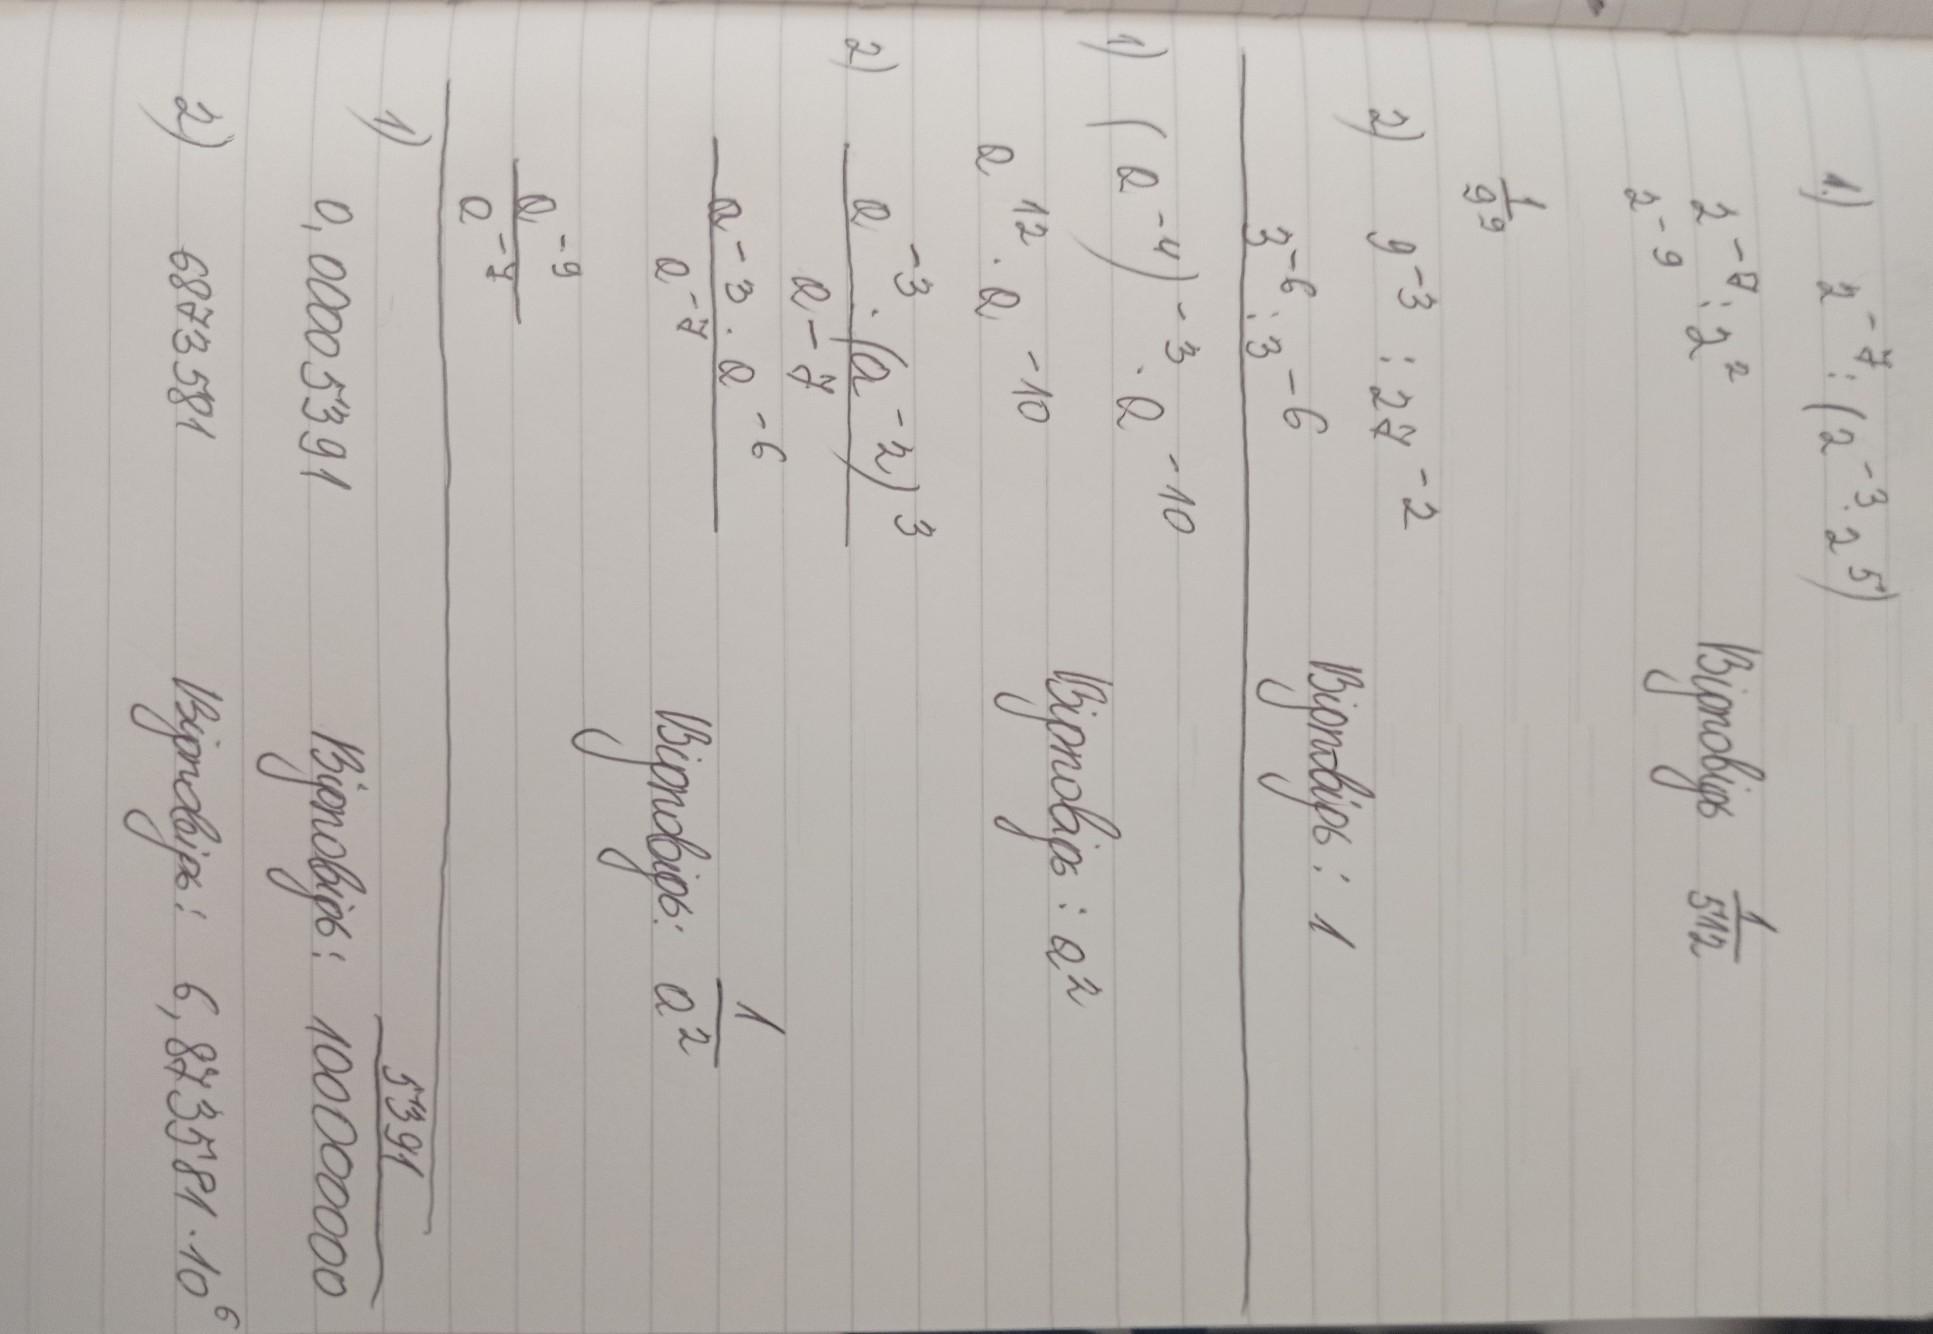 1.) 2⁻⁷ : (2⁻³ · 2⁵)
2⁻⁷ : 2² Відповідь 1/512
2⁻⁹
1/9⁹
2) 9⁻³ : 27⁻²
3⁻⁶ : 3⁻⁶ Відповідь : 1
1) (a⁻⁴)⁻³ · a⁻¹⁰
a¹² · a⁻¹⁰ Відповідь : a²
2) a⁻³ · (a⁻²)³
a⁻⁷
a⁻³ · a⁻⁶ 1
a⁻⁷ Відповідь: a²
a⁻⁹
a⁻⁷
1) 5391
0,00005391 Відповідь: 100000000
2) 6873581 Відповідь: 6,873581 · 10⁶